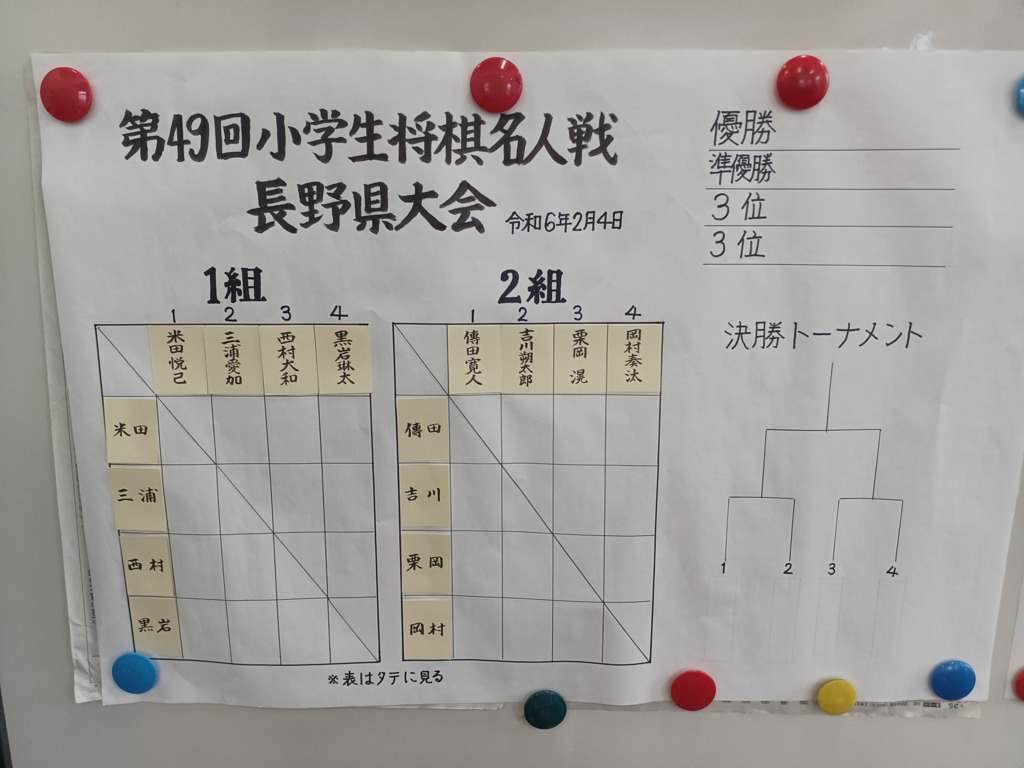 第49回小学生将棋名人戦
長野県大会 令和6年2月4日
優勝
準優勝
3位
3位
1組
1 2 3 4
米田悦己 三浦愛加 西村大和 黒岩琳太
米田
三浦
西村
黒岩
2組
1 2 3 4
傳田寛人 吉川朔太郎 栗岡 滉 岡村奏汰
傳田
吉川
栗岡
岡村
※表はタテに見る
決勝トーナメント
1 2 3 4